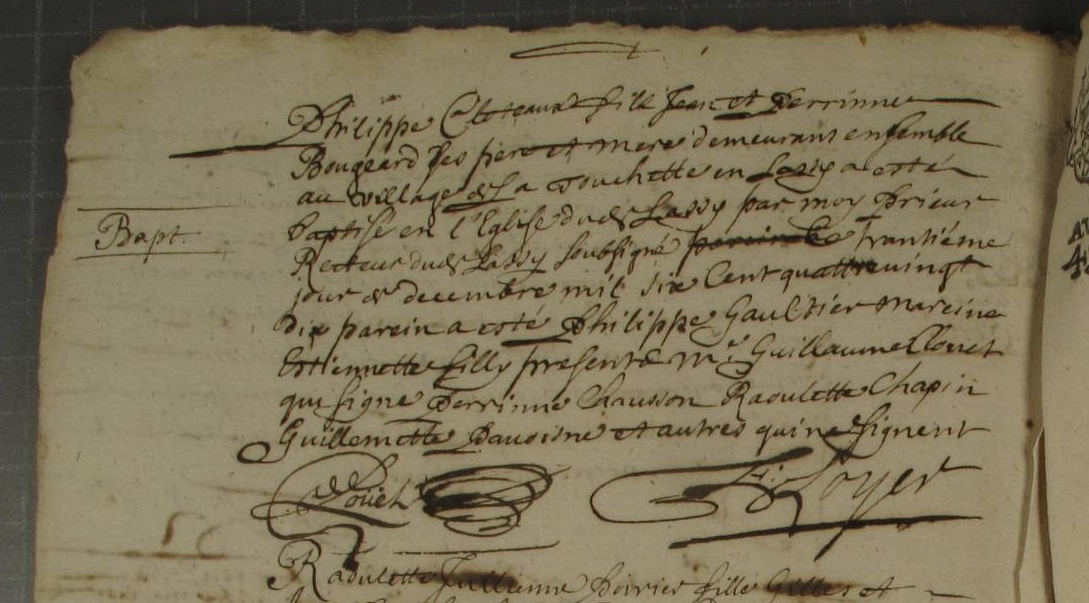 Philippe Cloteaux fill Jean et Perrinne
Bougeard ses pere et mere demeurans ensemble
au village de la Touchette en Lassy a esté
baptise en l'Eglise dud Lassy par moy Prieur
Recteur dud Lassy soubsigné trantiéme
jour de decembre mil six Cent quattrevingt
dix parein a esté Philippe Gaultier mareine
Estiennette filly presents Mre Guillaume Clouet
qui signe Perrinne Chausson Raoulette Chapin
Guillemette Pavoisne et autres qui ne signent
Bapt.
Clouet
F: Loyer
Raoulette Jullienne Poirier fille Gilles et